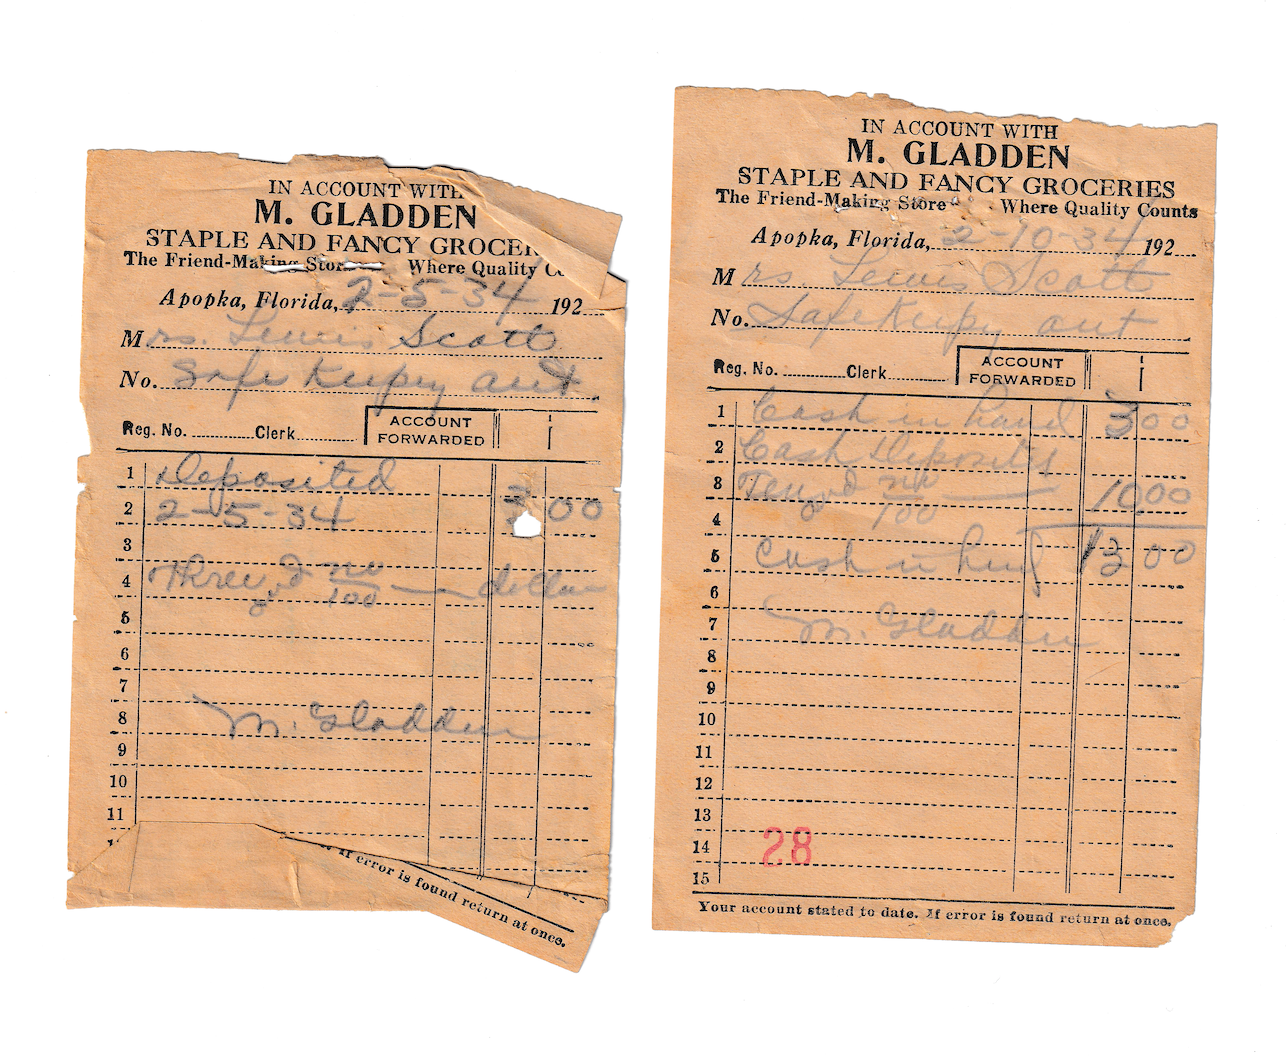 IN ACCOUNT WITH
M. GLADDEN
STAPLE AND FANCY GROCER
The Friend-Making Store Where Quality Co
Apopka, Florida, 2-5-34 192
Mrs. Lewis Scott
No. Safe Keepy aut.
Reg. No. Clerk ACCOUNT FORWARDED
1 Deposited
2 2-5-34 3 00
3
4 Three & no/100 — dollar
5
6
7
8 M. Gladden
9
10
11
If error is found return at once.
IN ACCOUNT WITH
M. GLADDEN
STAPLE AND FANCY GROCERIES
The Friend-Making Store Where Quality Counts
Apopka, Florida, 2-10-34 192
Mrs. Lewis Scott
No. Safe Keepy aut
Reg. No. Clerk ACCOUNT FORWARDED
1 Cash in hand 3 00
2 Cash Deposits
3 Ten & no/100 — 10 00
4
5 Cash in hand 13 00
6
7 M. Gladden
8
9
10
11
12
13
14 28
15
Your account stated to date. If error is found return at once.